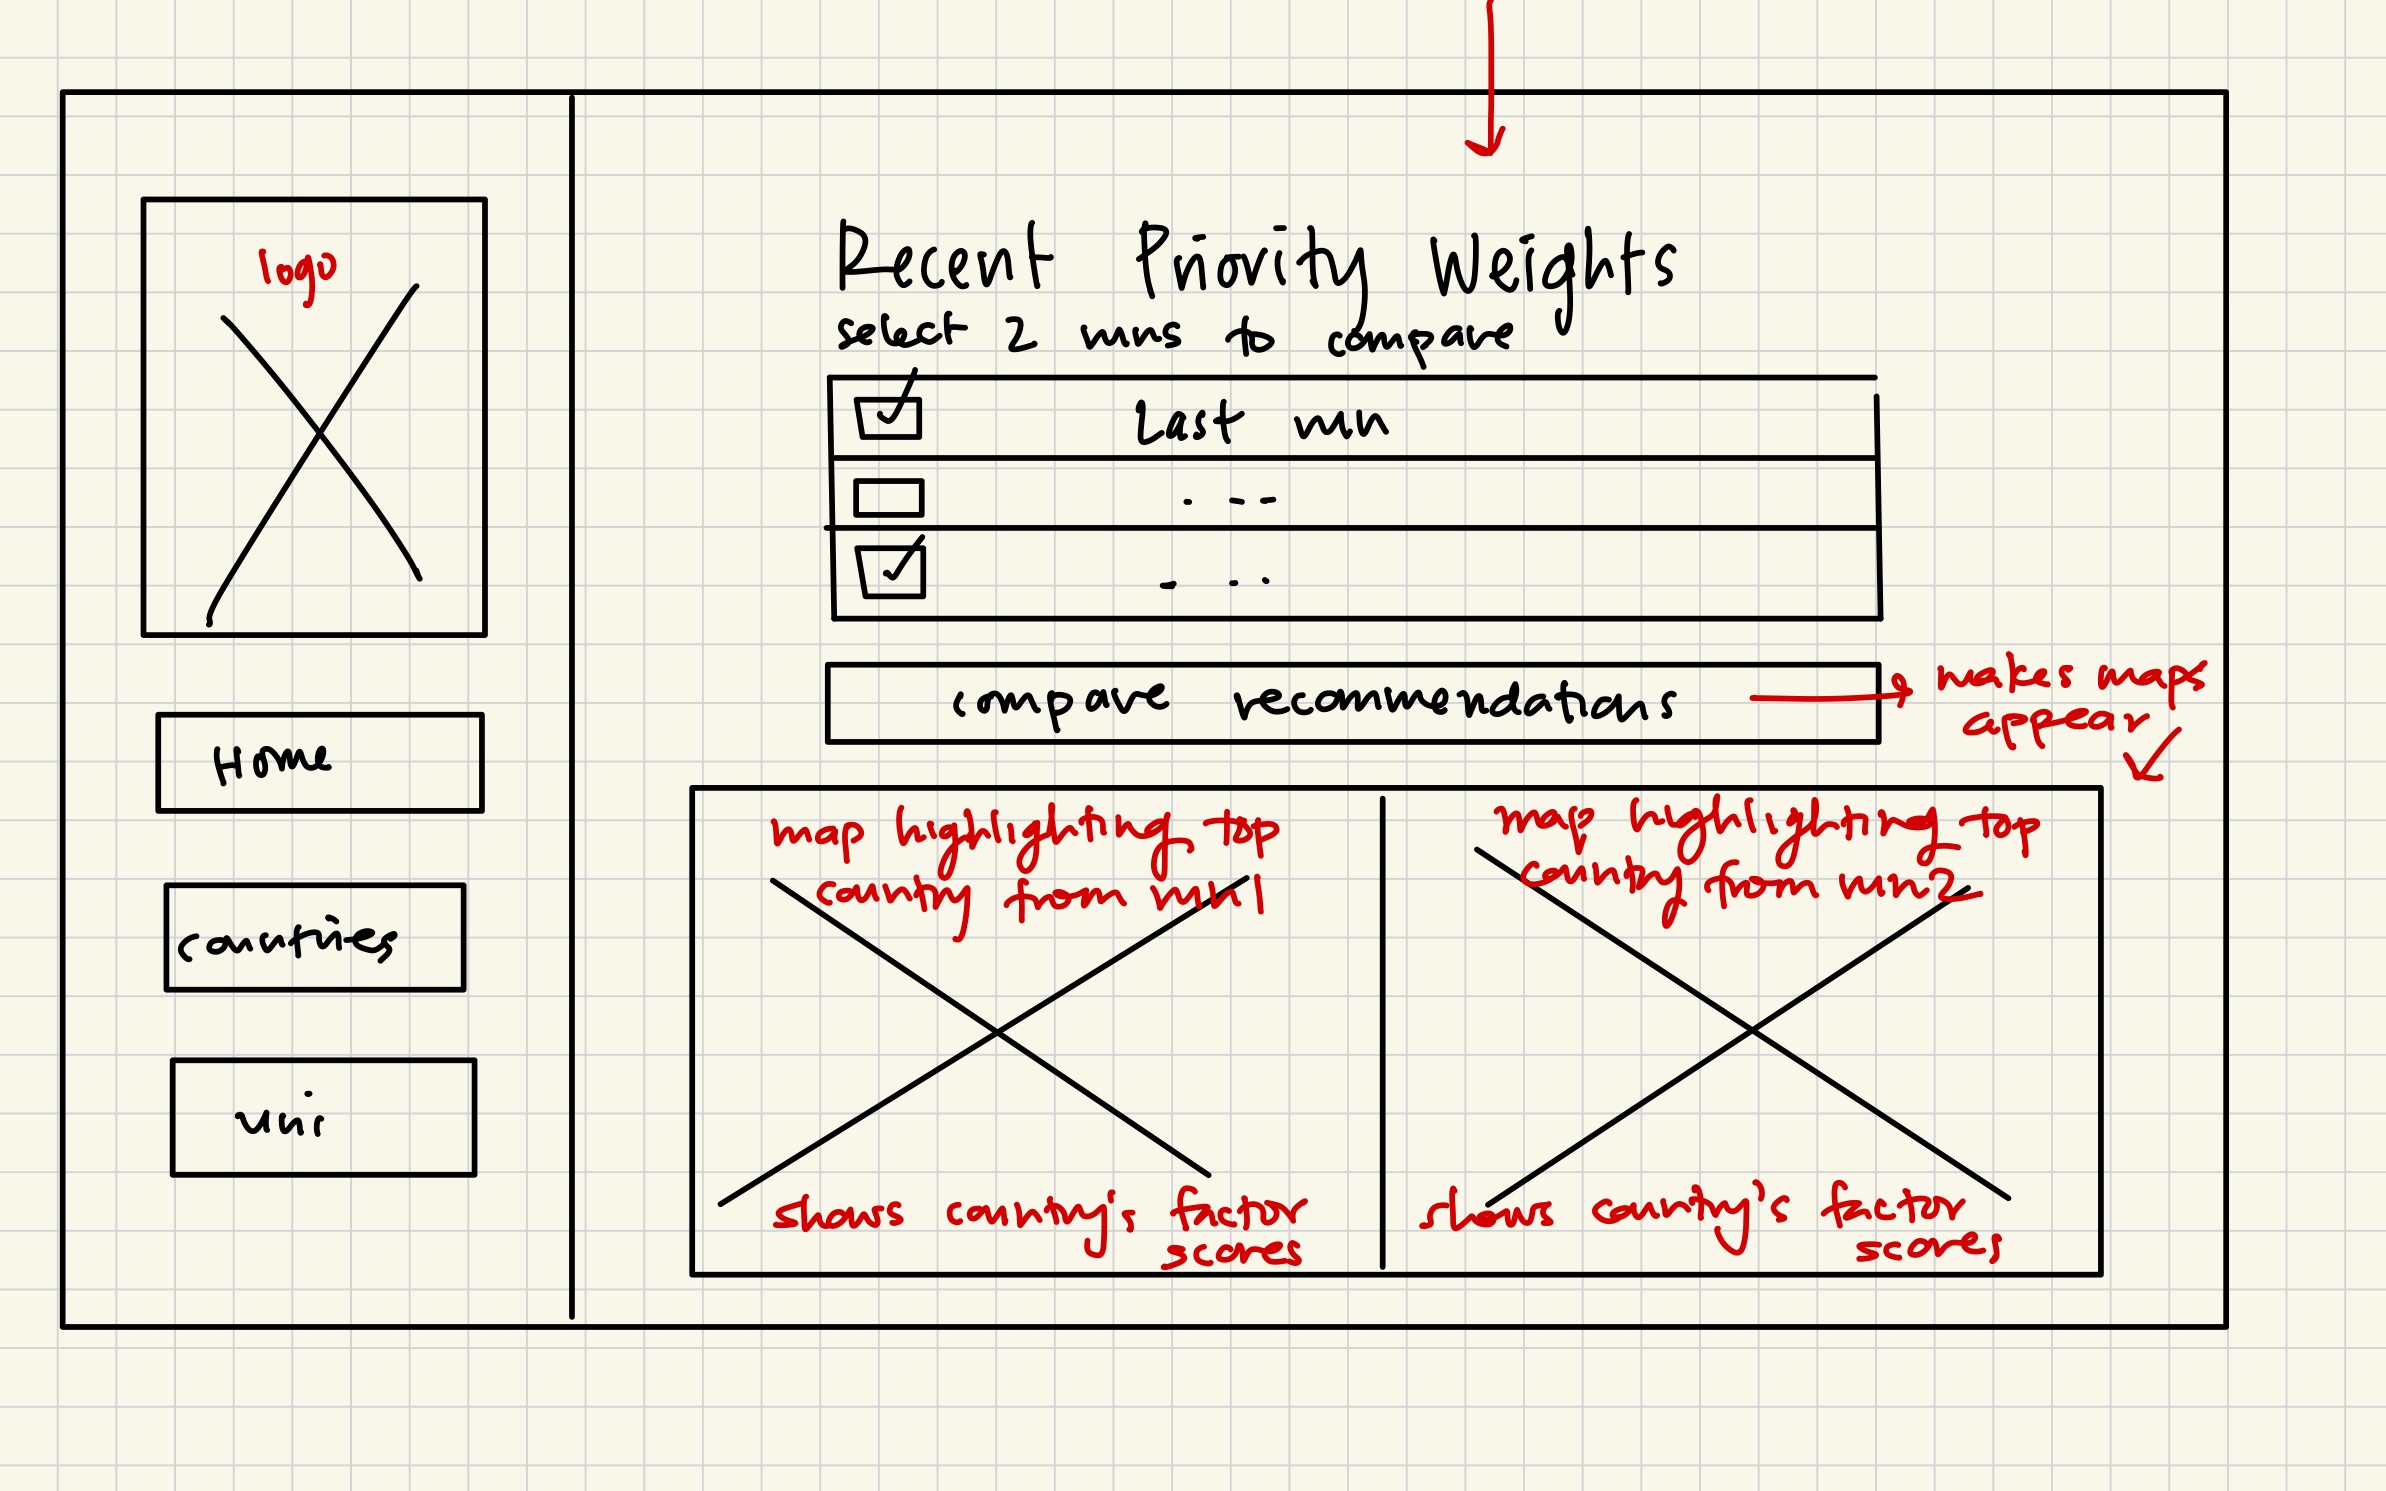 logo
Home
countries
uni
Recent Priority Weights
select 2 runs to compare
Last run
compare recommendations
makes maps
appear
map highlighting top
country from run 1
shows country's factor
scores
map highlighting top
country from run 2
shows country's factor
scores